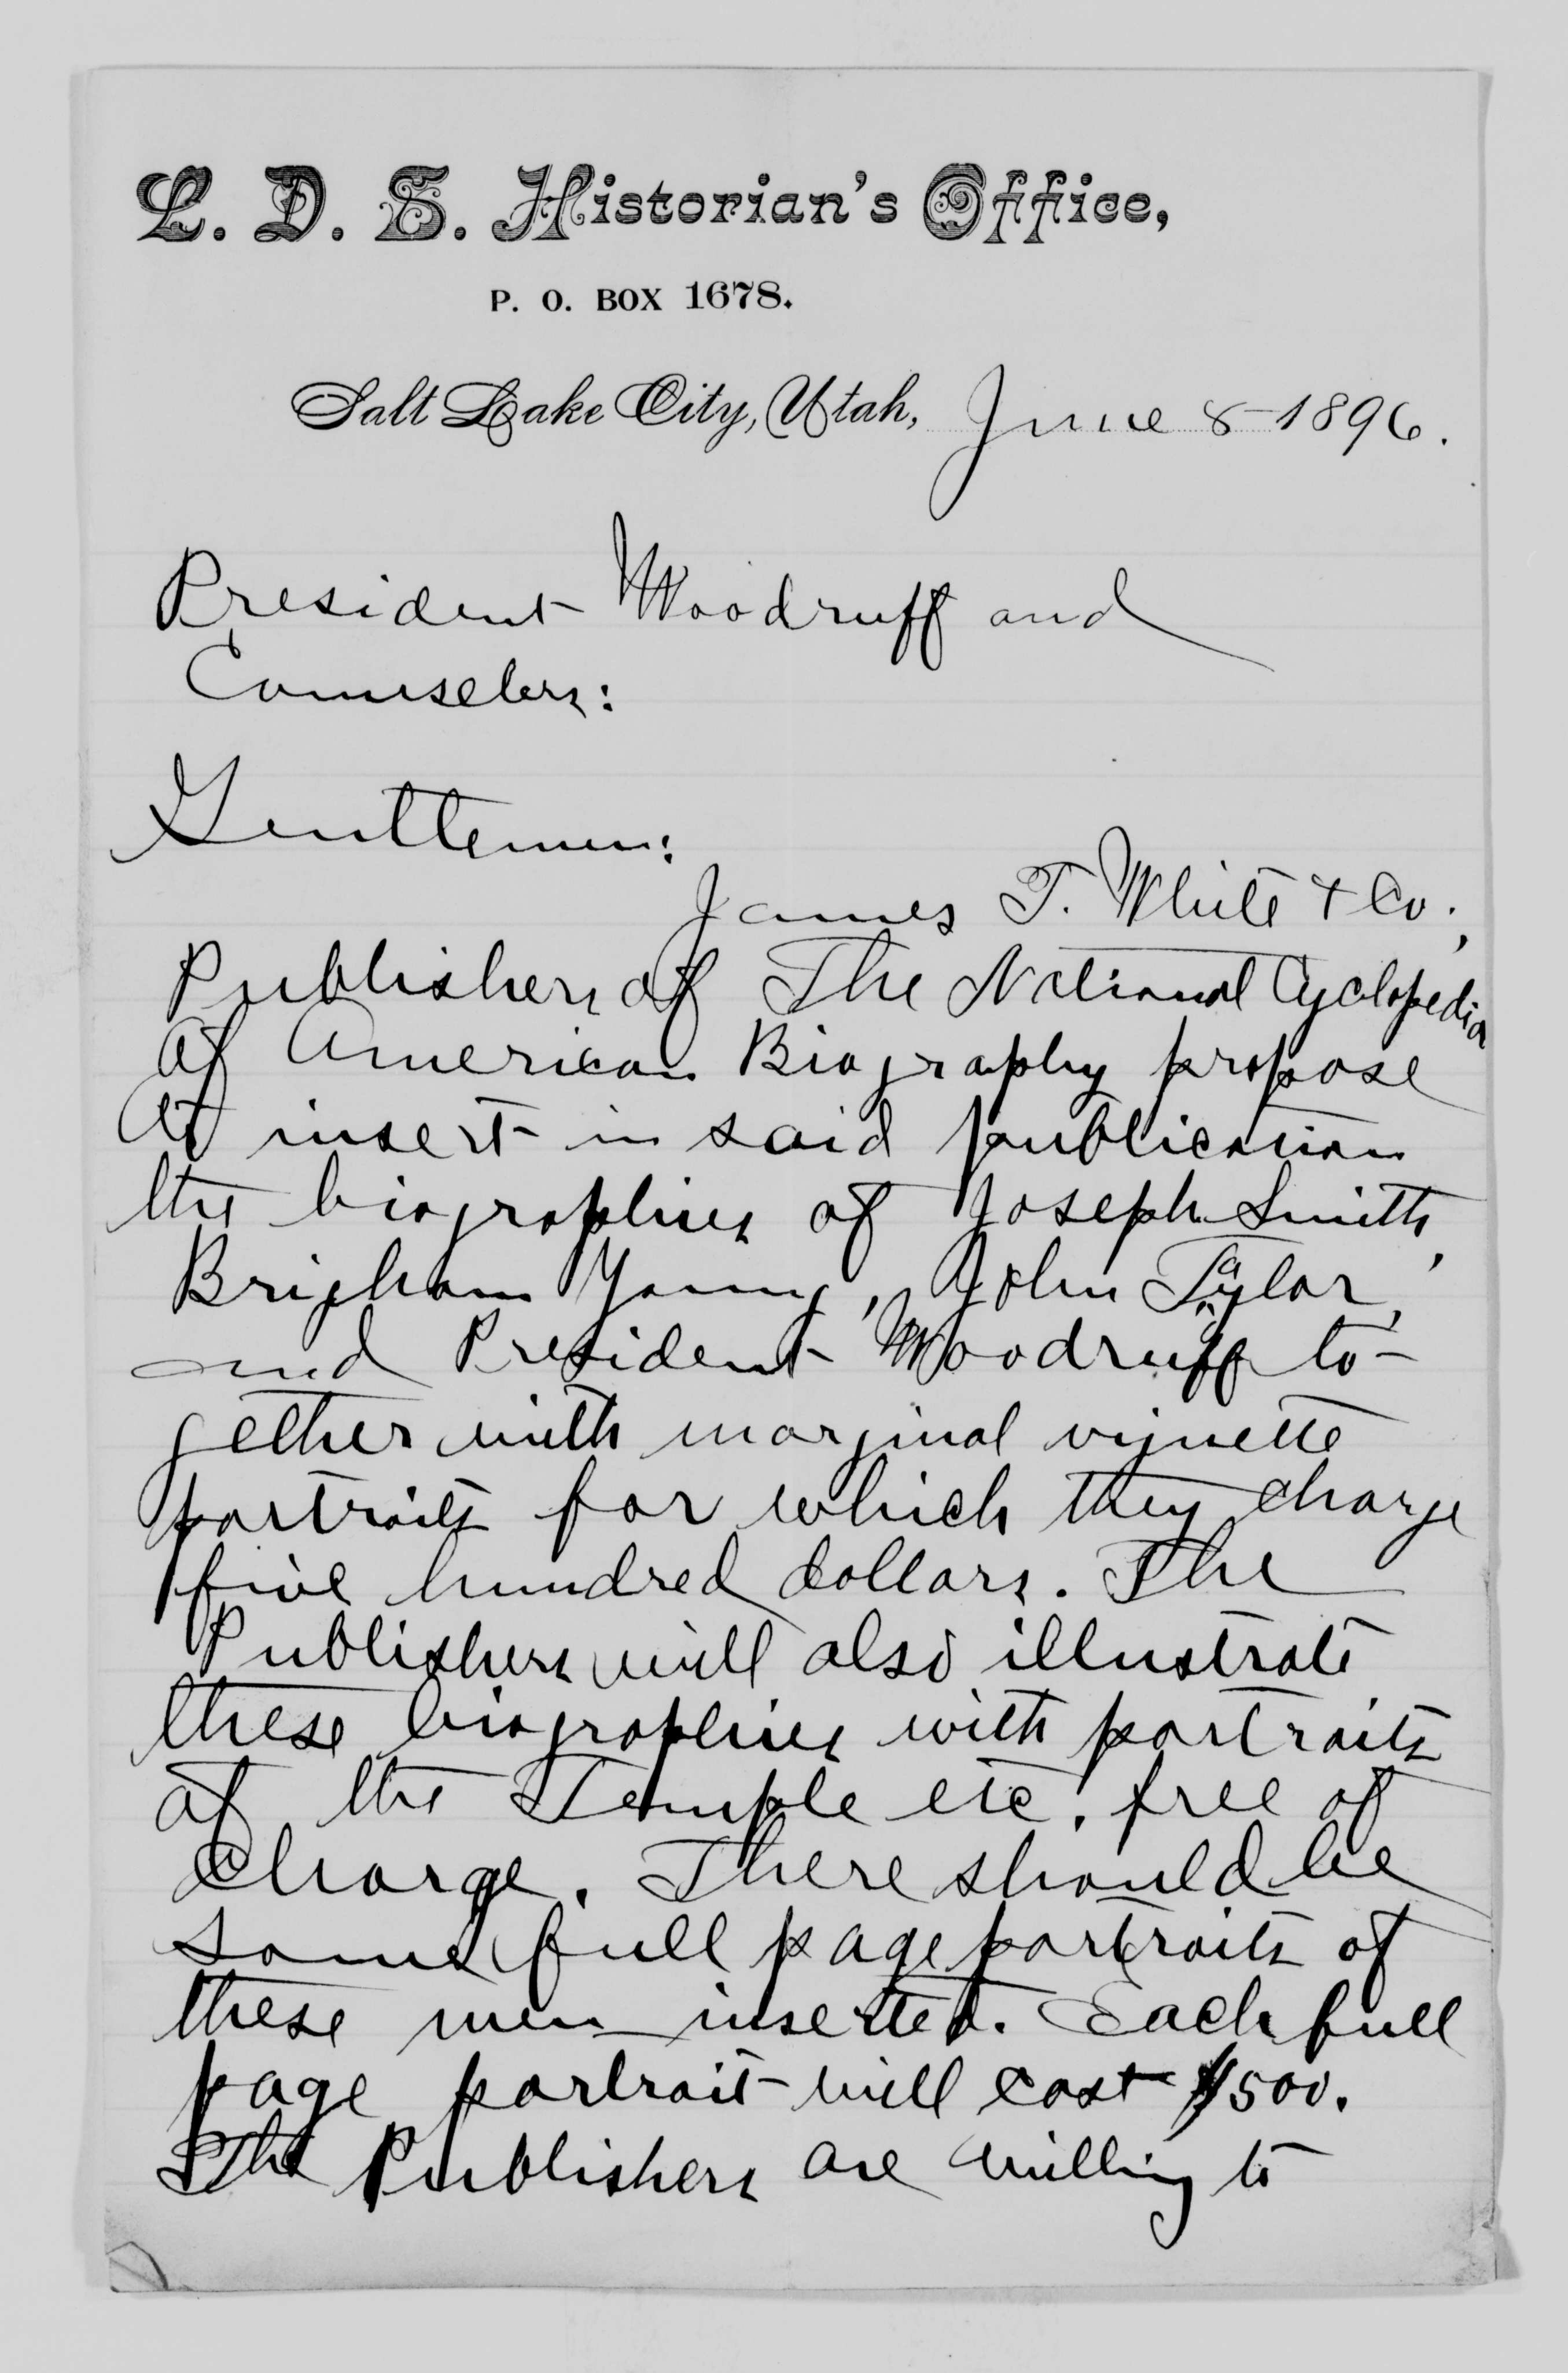 L. D. S. Historian's Office,
P. O. BOX 1678.
Salt Lake City, Utah, June 8 1896.
President Woodruff and
Counselers:
Gentlemen:
James T. White & Co.,
Publishers of The National Cyclopedia
of American Biography propose
to insert in said publication
the biographies of Joseph Smith,
Brigham Young, John Taylor,
and President Woodruff to-
gether with marginal vignette
portraits for which they charge
five hundred dollars. The
Publishers will also illustrate
these biographies with portraits
of the Temple etc. free of
charge. There should be
some full page portraits of
these men inserted. Each full
page portrait will cost $500.
The Publishers are willing to